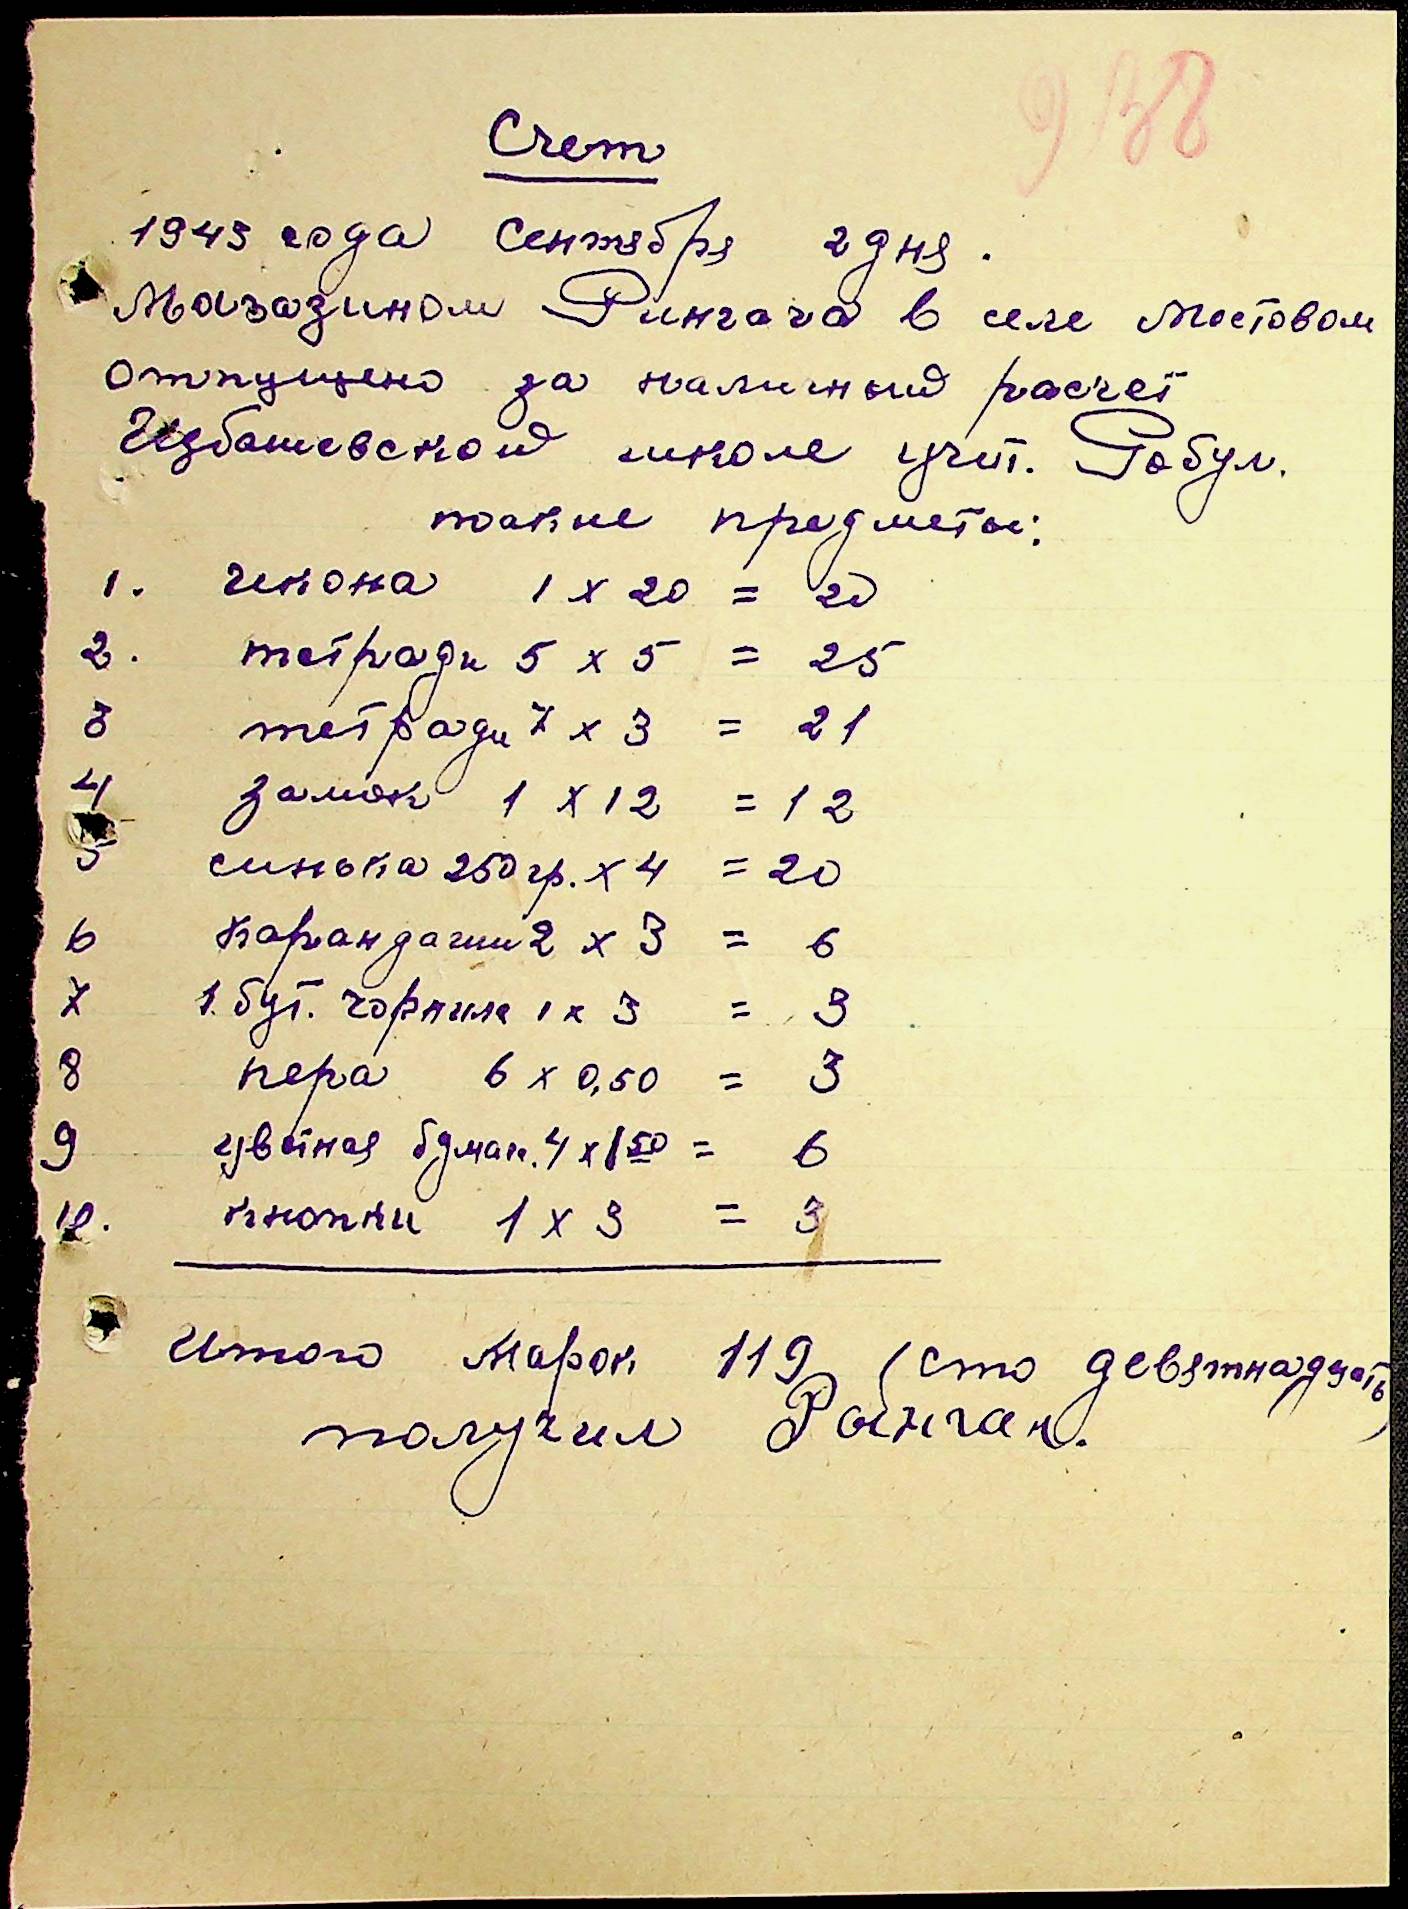 938
Счет
1943 года Сентября 2 дня.
Магазином Рингача в селе Мостовом
отпущено за наличный расчет
Избашевской школе учит. Рабул.
такие предметы:
1. икона 1 х 20 = 20
2. тетради 5 х 5 = 25
3 тетради 7 х 3 = 21
4 замок 1 х 12 = 12
5 синька 250 гр. х 4 = 20
6 Карандаши 2 х 3 = 6
7 1. бут. чорнила 1 х 3 = 3
8 пера 6 х 0,50 = 3
9 цветная бумаг. 4 х 1 50 = 6
10. кнопки 1 х 3 = 3
Итого Марок 119 (сто девятнадцать)
получил